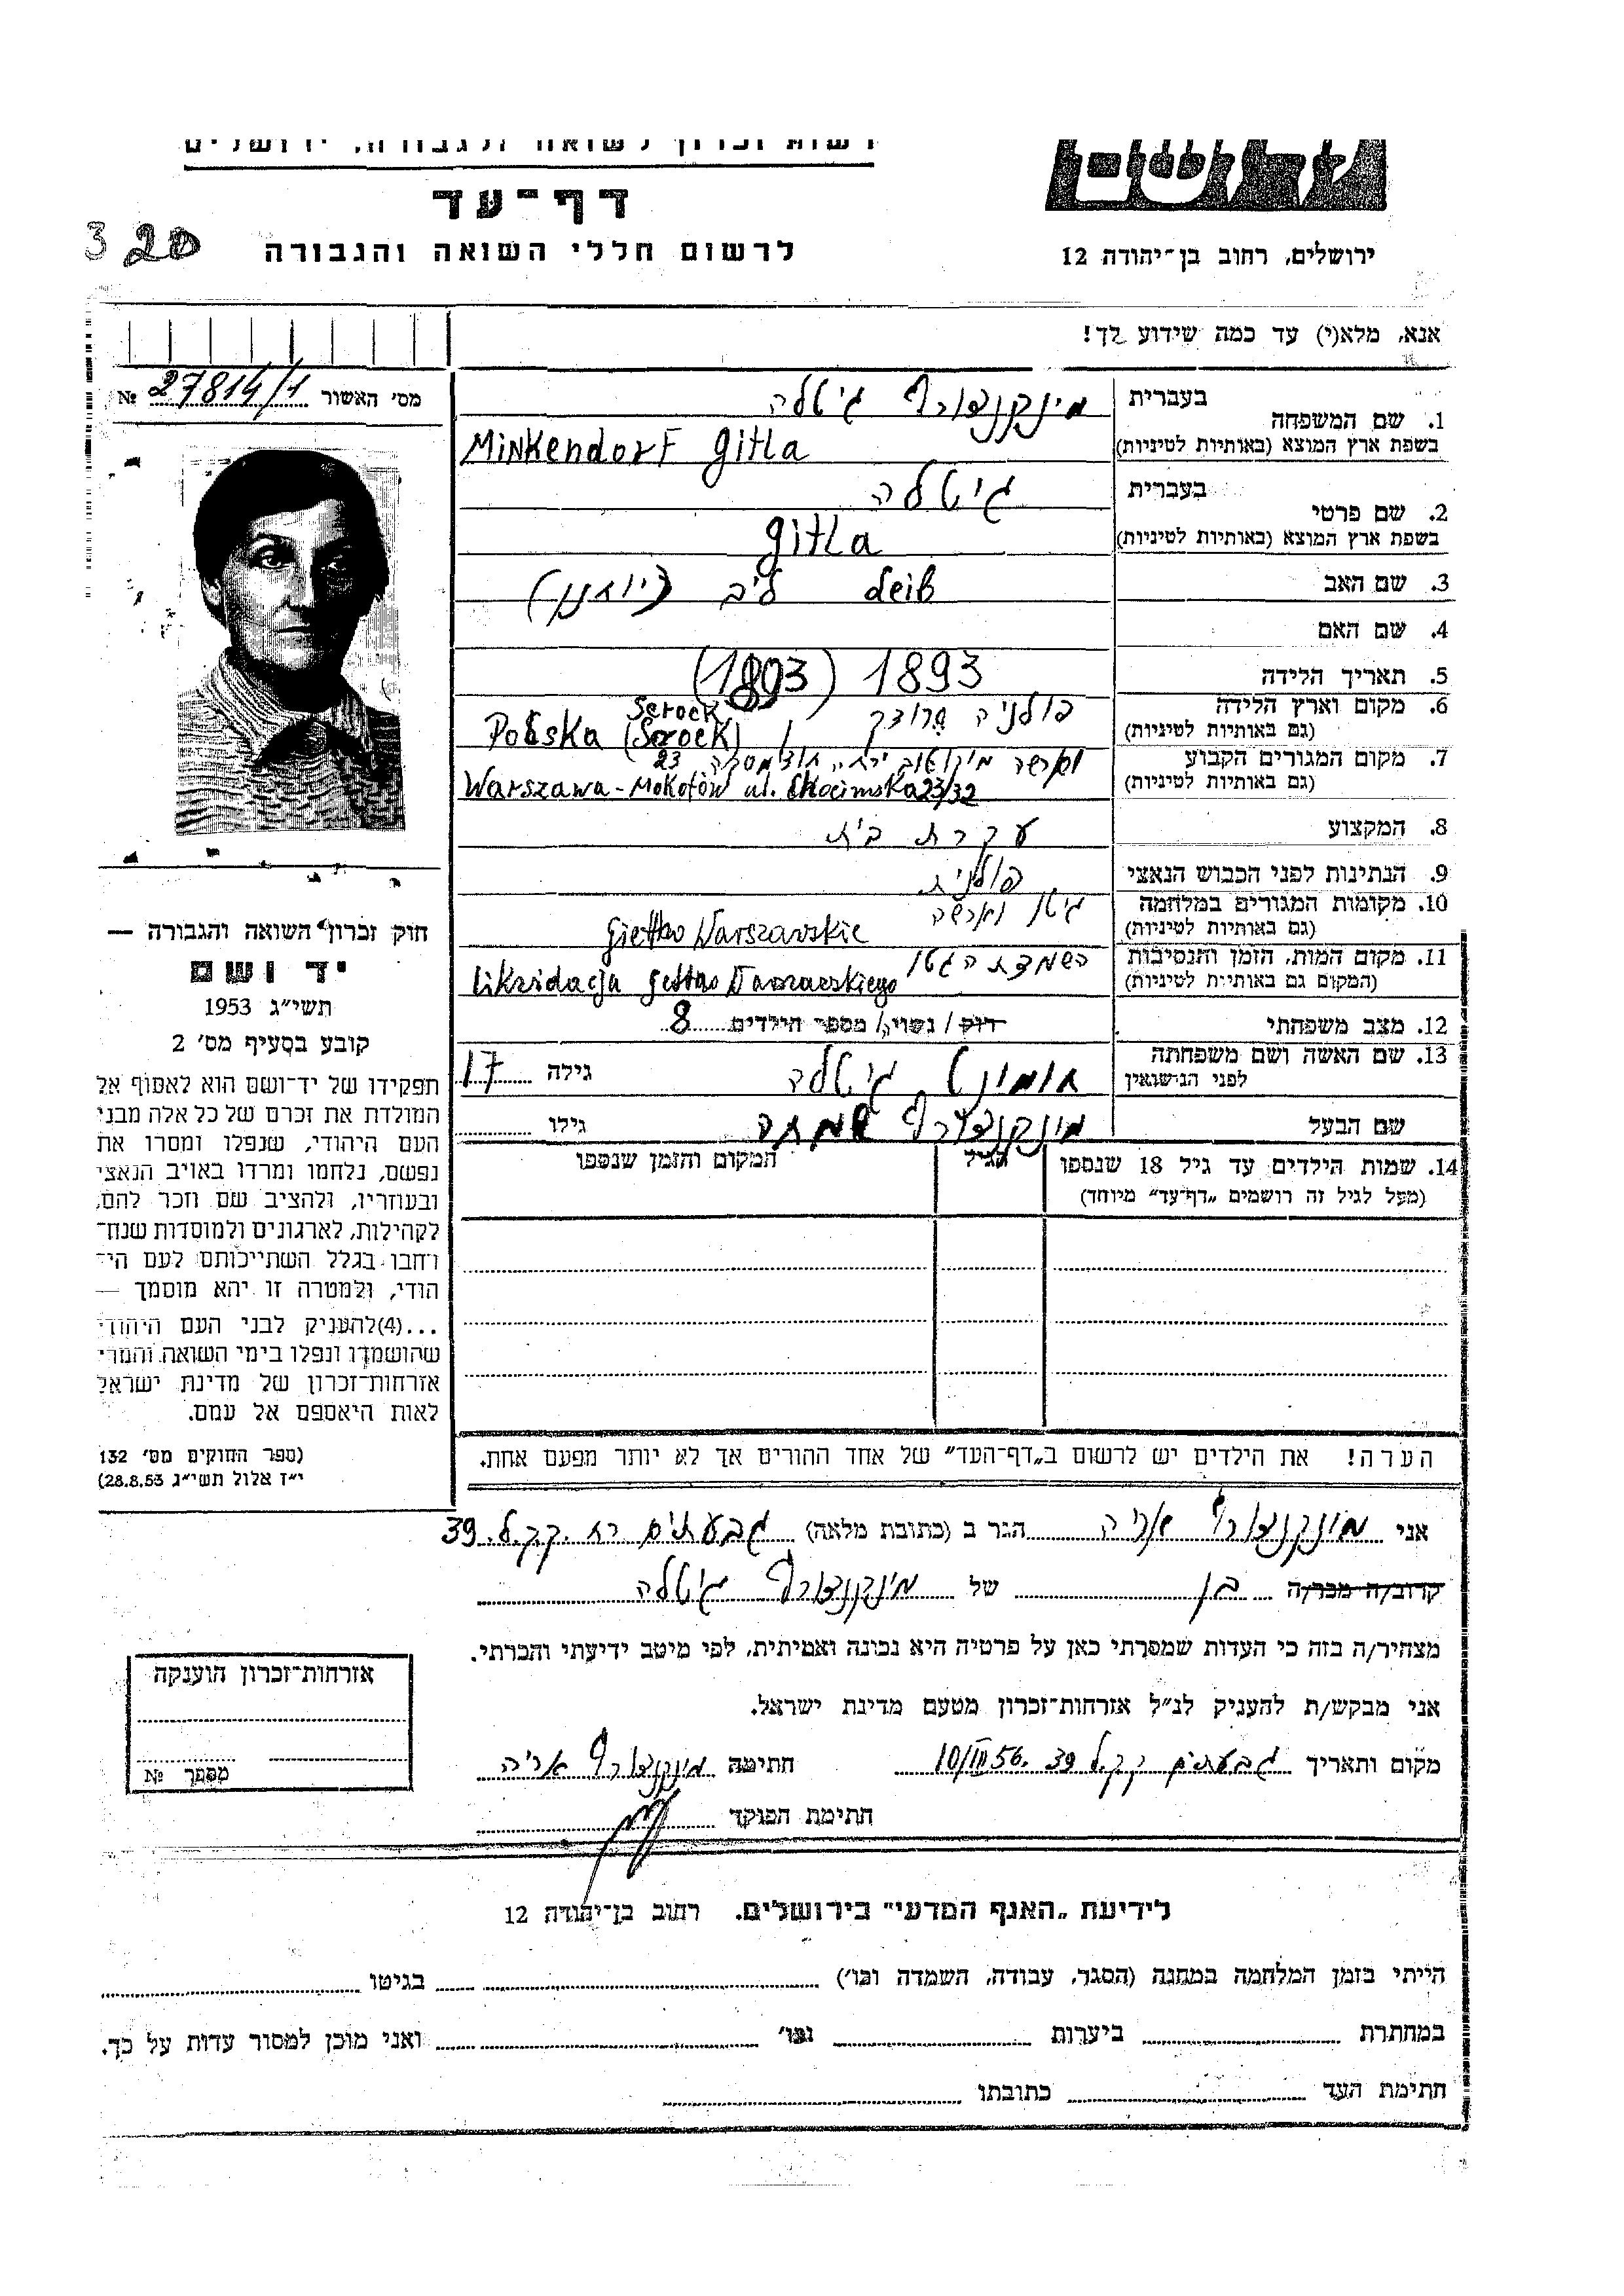 דף־עד
לרשום חללי השואה והגבורה
ירושלים, רחוב בן־יהודה 12
3 20
אנא, מלא(י) עד כמה שידוע לך!
מס׳ האשור № 27814/1
1. שם המשפחה
בעברית מינקנדורף גיטלה
בשפת ארץ המוצא (באותיות לטיניות) Minkendorf Gitla
2. שם פרטי
בעברית גיטלה
בשפת ארץ המוצא (באותיות לטיניות) Gitla
3. שם האב Leib ליב
4. שם האם
5. תאריך הלידה 1893 (1893)
6. מקום וארץ הלידה פולניה סרוצק Serock
(גם באותיות לטיניות) Polska (Serock)
7. מקום המגורים הקבוע וארשה מוקוטוב 23
(גם באותיות לטיניות) Warszawa-Mokotów ul. Chocimska 23/32
8. המקצוע עקרת בית
9. הנתינות לפני הכבוש הנאצי פולנית
10. מקומות המגורים במלחמה גיטו וארשה
(גם באותיות לטיניות) Gietto Warszawskie
11. מקום המות, הזמן והנסיבות השמדת הגטו
(המקום גם באותיות לטיניות) Likwidacja Gettas Warszawskiego
12. מצב משפחתי רווק / נשוי/ה / מספר הילדים 8
13. שם האשה ושם משפחתה
לפני הנישואין גיטלה גילה 17
שם הבעל מינקנדורף שמחה גילו
14. שמות הילדים עד גיל 18 שנספו הגיל המקום והזמן שנספו
(מעל לגיל זה רושמים „דף־עד״ מיוחד)
הערה! את הילדים יש לרשום ב„דף־העד״ של אחד ההורים אך לא יותר מפעם אחת.
חוק זכרון השואה והגבורה —
יד ושם
תשי״ג 1953
קובע בסעיף מס׳ 2
תפקידו של יד־ושם הוא לאסוף אל
המולדת את זכרם של כל אלה מבני
העם היהודי, שנפלו ומסרו את
נפשם, נלחמו ומרדו באויב הנאצי
ובעוזריו, ולהציב שם וזכר להם,
לקהילות, לארגונים ולמוסדות שנח־
רחבו בגלל השתייכותם לעם הי־
הודי, ולמטרה זו יהא מוסמך —
...(4)להעניק לבני העם היהודי
שהושמדו ונפלו בימי השואה והמרי
אזרחות־זכרון של מדינת ישראל
לאות היאספם אל עמם.
(ספר החוקים מס׳ 132
י״ז אלול תשי״ג 28.8.53)
אני מינקנדורף אריה הגר ב (כתובת מלאה) גבעתים רח. ק.ק.ל. 39
קרוב/ה מכר/ה בן של מינקנדורף גיטלה
מצהיר/ה בזה כי העדות שמסרתי כאן על פרטיה היא נכונה ואמיתית, לפי מיטב ידיעתי והכרתי.
אני מבקש/ת להעניק לנ״ל אזרחות־זכרון מטעם מדינת ישראל.
מקום ותאריך גבעתים ק.ק.ל 39 .10/III 56 חתימה מינקנדורף אריה
חתימת הפוקד
אזרחות־זכרון הוענקה
מספר №
לידיעת „האגף המדעי״ בירושלים. רחוב בן־יהודה 12
הייתי בזמן המלחמה במחנה (הסגר, עבודה, השמדה וכו׳) בגיטו
במחתרת ביערות וכו׳ ואני מוכן למסור עדות על כך.
חתימת העד כתובתו